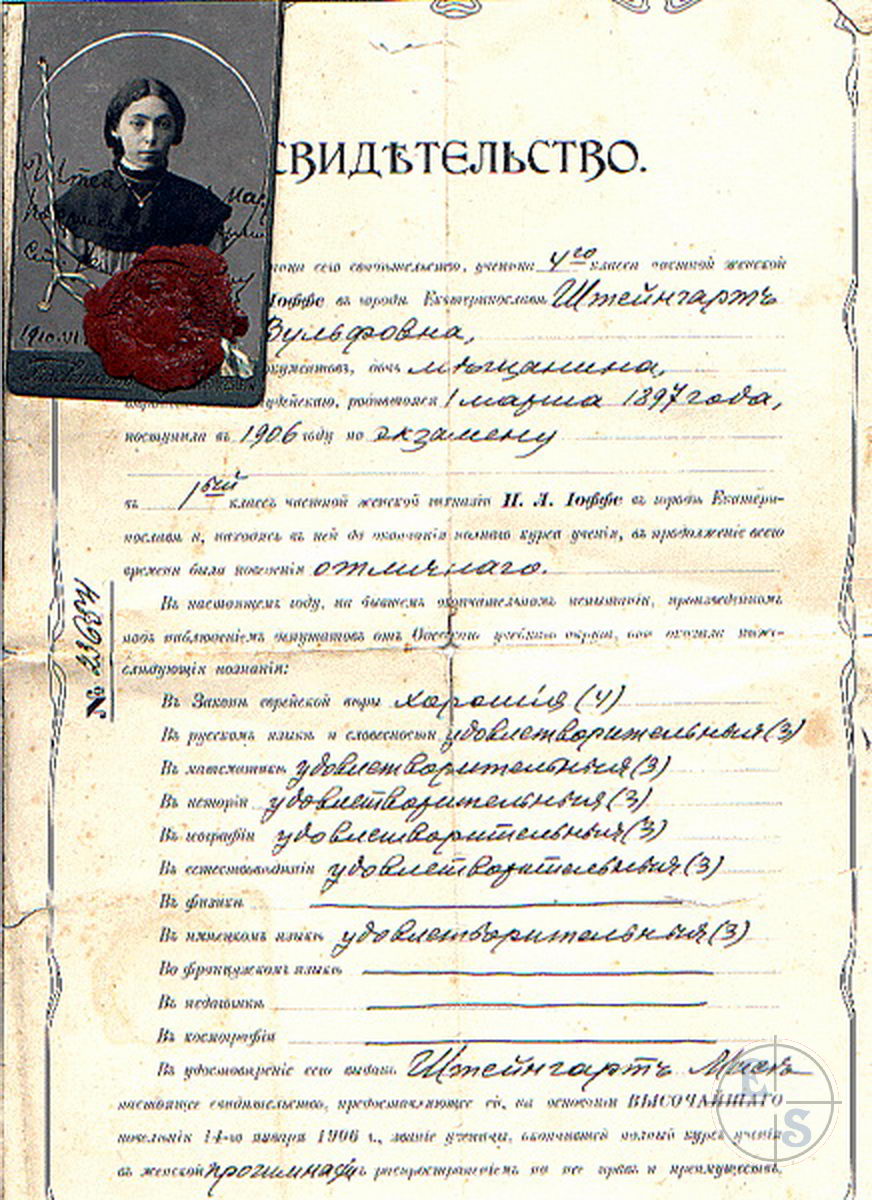 СВИДѢТЕЛЬСТВО.
сего свидѣтельство, ученица 4го класса частной женской
Іоффе въ городѣ Екатеринославѣ Штейнгартъ
Вульфовна,
документовъ, дочь мѣщанина,
іудейскаго, родившаяся 1 марта 1897 года,
поступила въ 1906 году по экзамену
въ 1ый классъ частной женской гимназіи И. Л. Іоффе въ городѣ Екатери-
нославѣ и, находясь въ ней до окончанія полнаго курса ученія, въ продолженіе всего
времени была поведенія отличнаго.
Въ настоящемъ году, на бывшемъ окончательномъ испытаніи, произведенномъ
подъ наблюденіемъ депутатовъ отъ Одесскаго учебнаго округа, она оказала ниже-
слѣдующія познанія:
№ 23634
Въ Законѣ еврейской вѣры хорошія (4)
Въ русскомъ языкѣ и словесности удовлетворительныя (3)
Въ математикѣ удовлетворительныя (3)
Въ исторіи удовлетворительныя (3)
Въ географіи удовлетворительныя (3)
Въ естествовѣдѣніи удовлетворительныя (3)
Въ физикѣ
Въ нѣмецкомъ языкѣ удовлетворительныя (3)
Во французскомъ языкѣ
Въ педагогикѣ
Въ космографіи
Въ удостовѣреніе сего выдано Штейнгартъ
настоящее свидѣтельство, предоставляющее ей, на основаніи ВЫСОЧАЙШАГО
повелѣнія 14-го января 1906 г., званіе ученицы, окончившей полный курсъ ученія
въ женской прогимназіи распространеніемъ на нее правъ и преимуществъ.
1910. VI
E
S